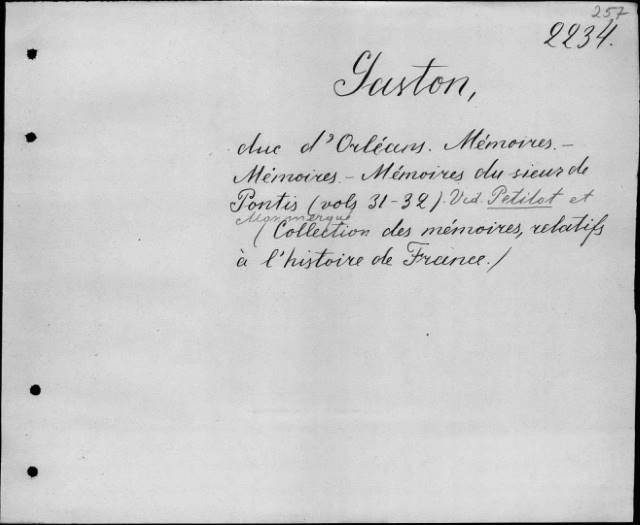 257
2234.
Gaston,
duc d'Orléans. Mémoires.-
Mémoires.- Mémoires du sieur de
Pontis (vols 31-32). Vid. Petitot et
Monmerqué
(Collection des mémoires, relatifs
à l'histoire de France.)